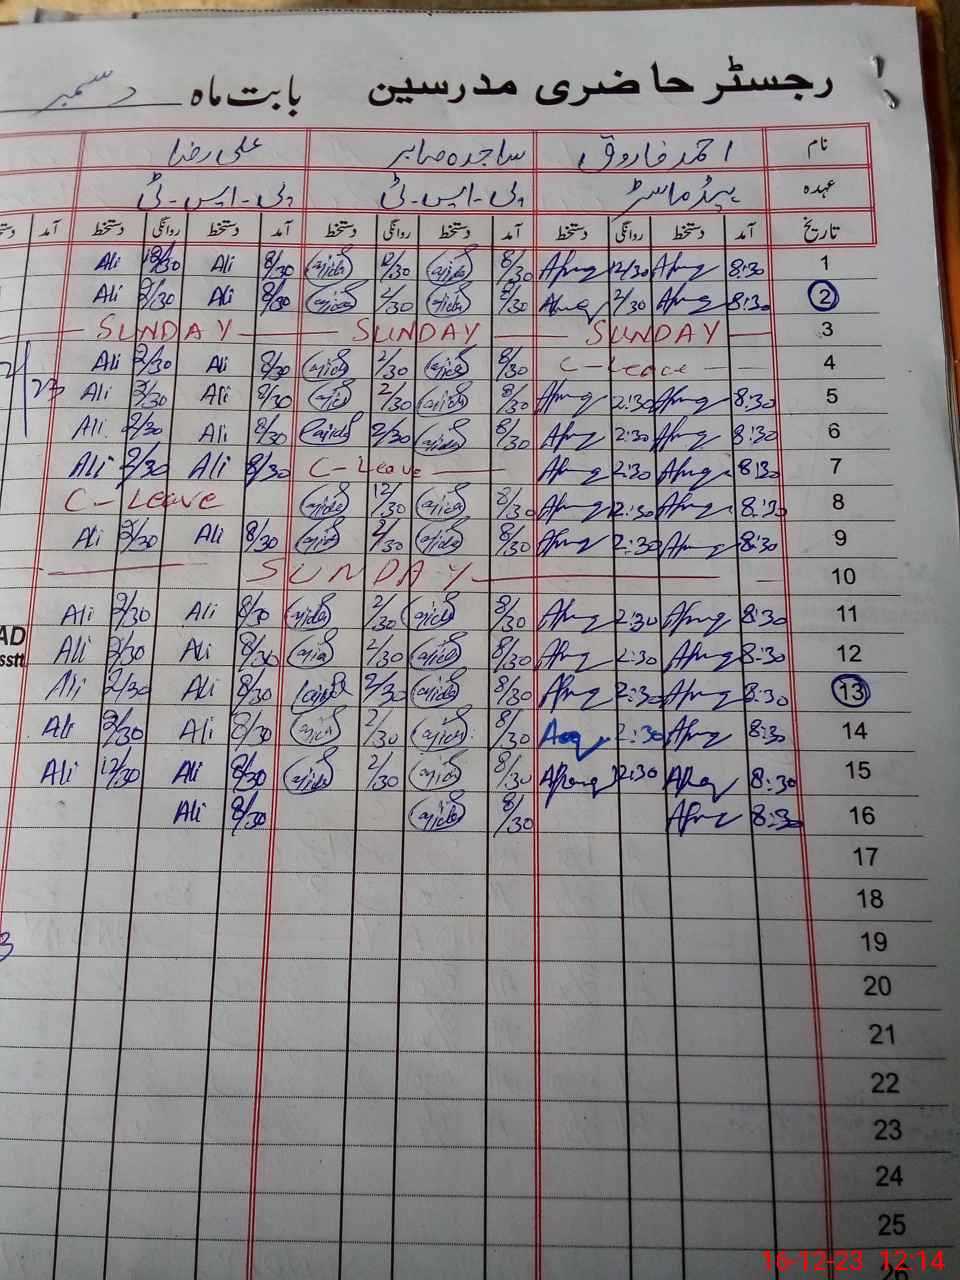 رجسٹر حاضری مدرسین بابت ماہ دسمبر
نام احمد فاروق ساجدہ صابر علی رضا
عہدہ ہیڈ ماسٹر پی-ایس-ٹی پی-ایس-ٹی
تاریخ آمد دستخط روانگی دستخط آمد دستخط روانگی دستخط آمد دستخط روانگی دستخط آمد
1 8:30 12/30 8/30 12/30 8/30 Ali 12/30 Ali
2 8:30 2/30 8/30 2/30 8/30 Ali 2/30 Ali
3 SUNDAY SUNDAY SUNDAY
4 C-Leave 8/30 2/30 8/30 Ali 2/30 Ali
5 8:30 2:30 8/30 2/30 8/30 Ali 2/30 Ali 23
6 8:30 2:30 8/30 2/30 8/30 Ali 2/30 Ali
7 8:30 2:30 C-Leave 8/30 Ali 2/30 Ali
8 8:30 12:30 8/30 12/30 C-Leave
9 8:30 2:30 8/30 2/30 8/30 Ali 2/30 Ali
10 SUNDAY
11 8:30 2:30 8/30 2/30 8/30 Ali 2/30 Ali
12 8:30 2:30 8/30 2/30 8/30 Ali 2/30 Ali
13 8:30 2:30 8/30 2/30 8/30 Ali 2/30 Ali
14 8:30 2:30 8/30 2/30 8/30 Ali 2/30 Ali
15 8:30 12:30 8/30 2/30 8/30 Ali 12/30 Ali
16 8:30 8/30 8/30 Ali
17
18
19
20
21
22
23
24
25
26
16-12-23 12:14